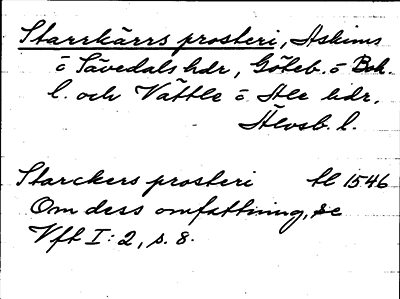 Starrkärrs prosteri, Askims
o Sävedals hdr, Göteb. o Boh.
l. och Vättle o Ale hdr.
Älvsb. l.
Starckers prosteri tl 1546
Om dess omfattning, se
Vft I: 2, s. 8.